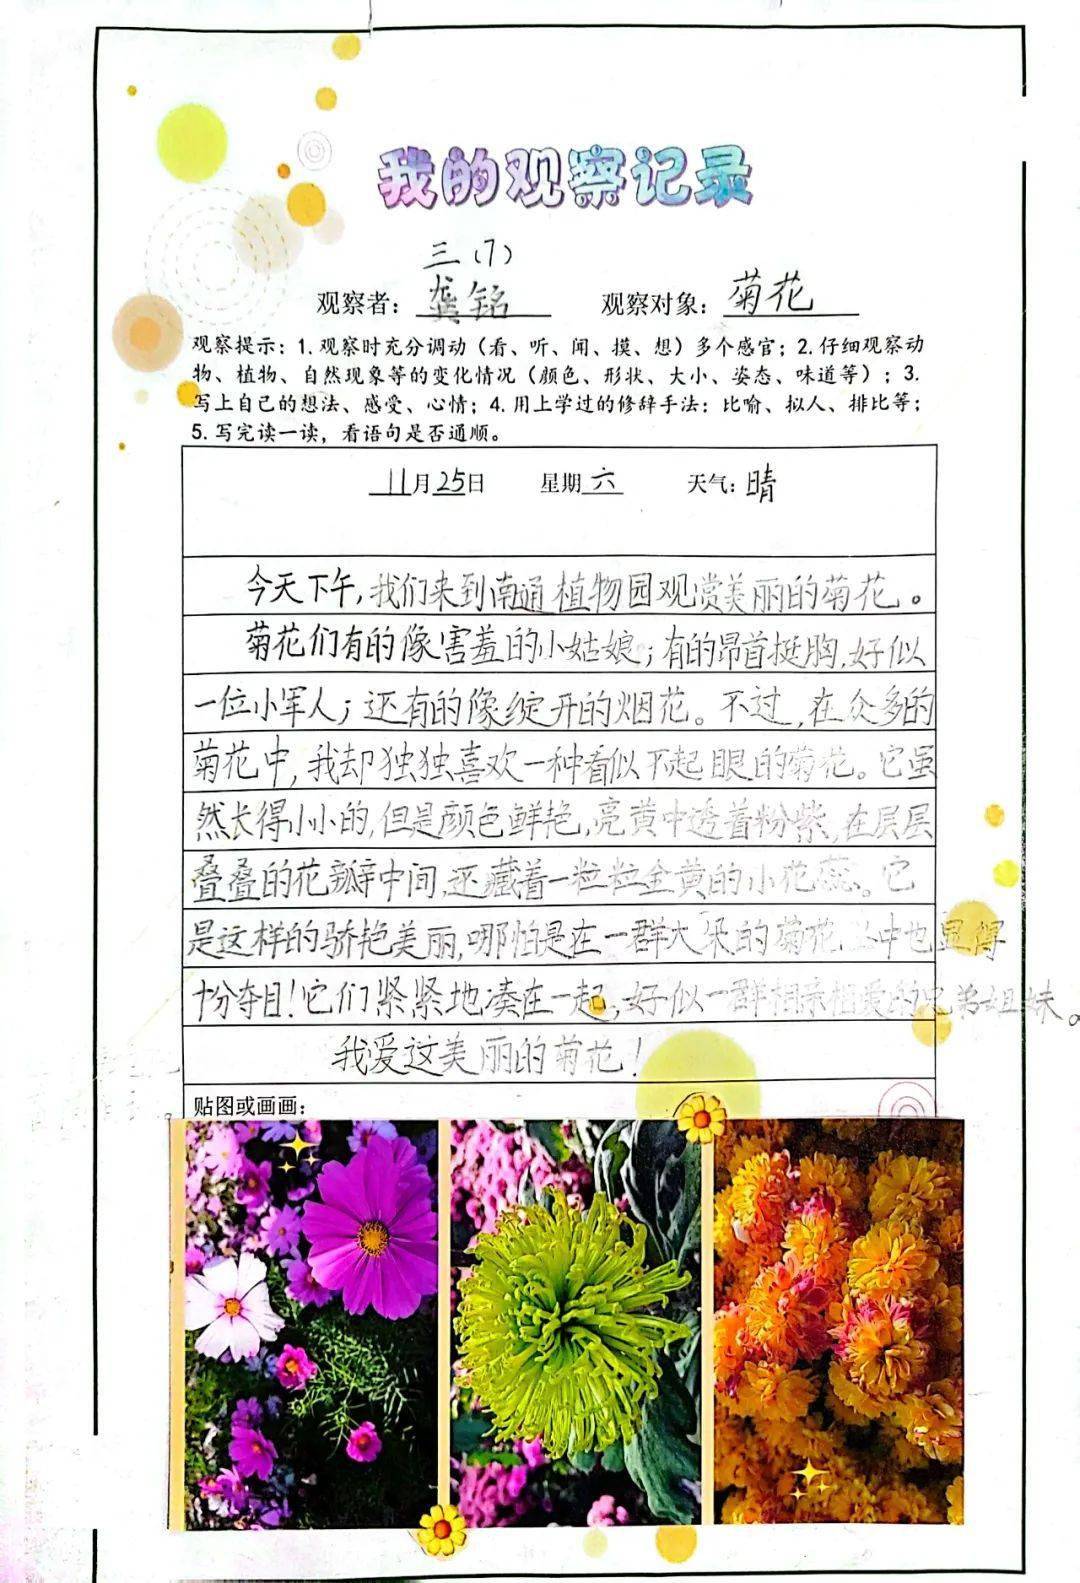 我的观察记录
三(7)
观察者：龚铭 观察对象：菊花
观察提示：1.观察时充分调动（看、听、闻、摸、想）多个感官；2.仔细观察动
物、植物、自然现象等的变化情况（颜色、形状、大小、姿态、味道等）；3.
写上自己的想法、感受、心情；4.用上学过的修辞手法：比喻、拟人、排比等；
5.写完读一读，看语句是否通顺。
11月25日 星期六 天气：晴
今天下午，我们来到南通植物园观赏美丽的菊花。
菊花们有的像害羞的小姑娘；有的昂首挺胸，好似
一位小军人；还有的像绽开的烟花。不过，在众多的
菊花中，我却独独喜欢一种看似不起眼的菊花。它虽
然长得小小的，但是颜色鲜艳，亮黄中透着粉紫，在层层
叠叠的花瓣中间，还藏着一粒粒金黄的小花蕊。它
是这样的骄艳美丽，哪怕是在一群大朵的菊花之中也显得
十分夺目！它们紧紧地凑在一起，好似一群相亲相爱的兄弟姐妹。
我爱这美丽的菊花！
贴图或画画：